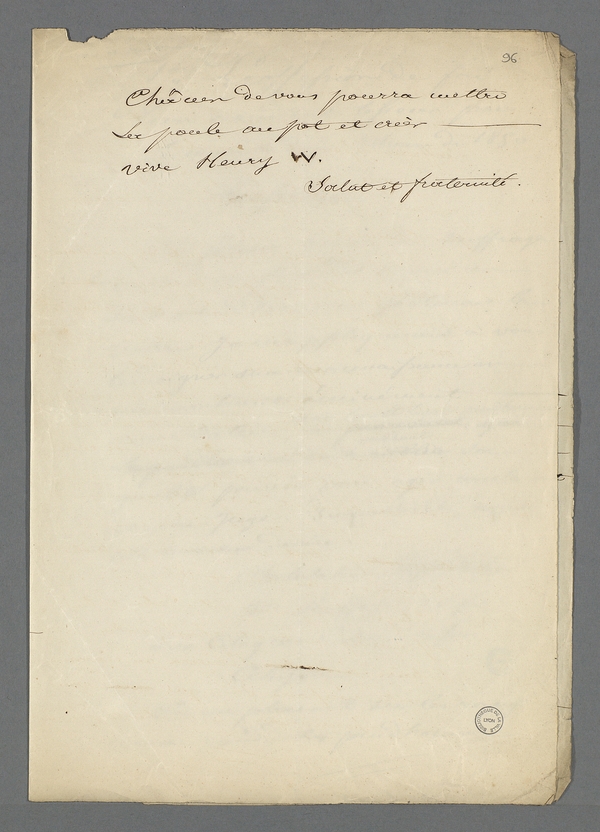 96
Chacun de vous pourra mettre
La poule au pot et crier
vive Henry IV.
Salut et fraternité.
BIBLIOTHEQUE DE LA VILLE
LYON